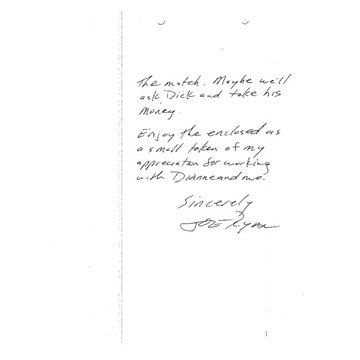 The match. Maybe we'll
ask Dick and take his
money.
Enjoy the enclosed as
a small token of my
appreciation for working
with Dianne and me.
Sincerely
JOE Ryan